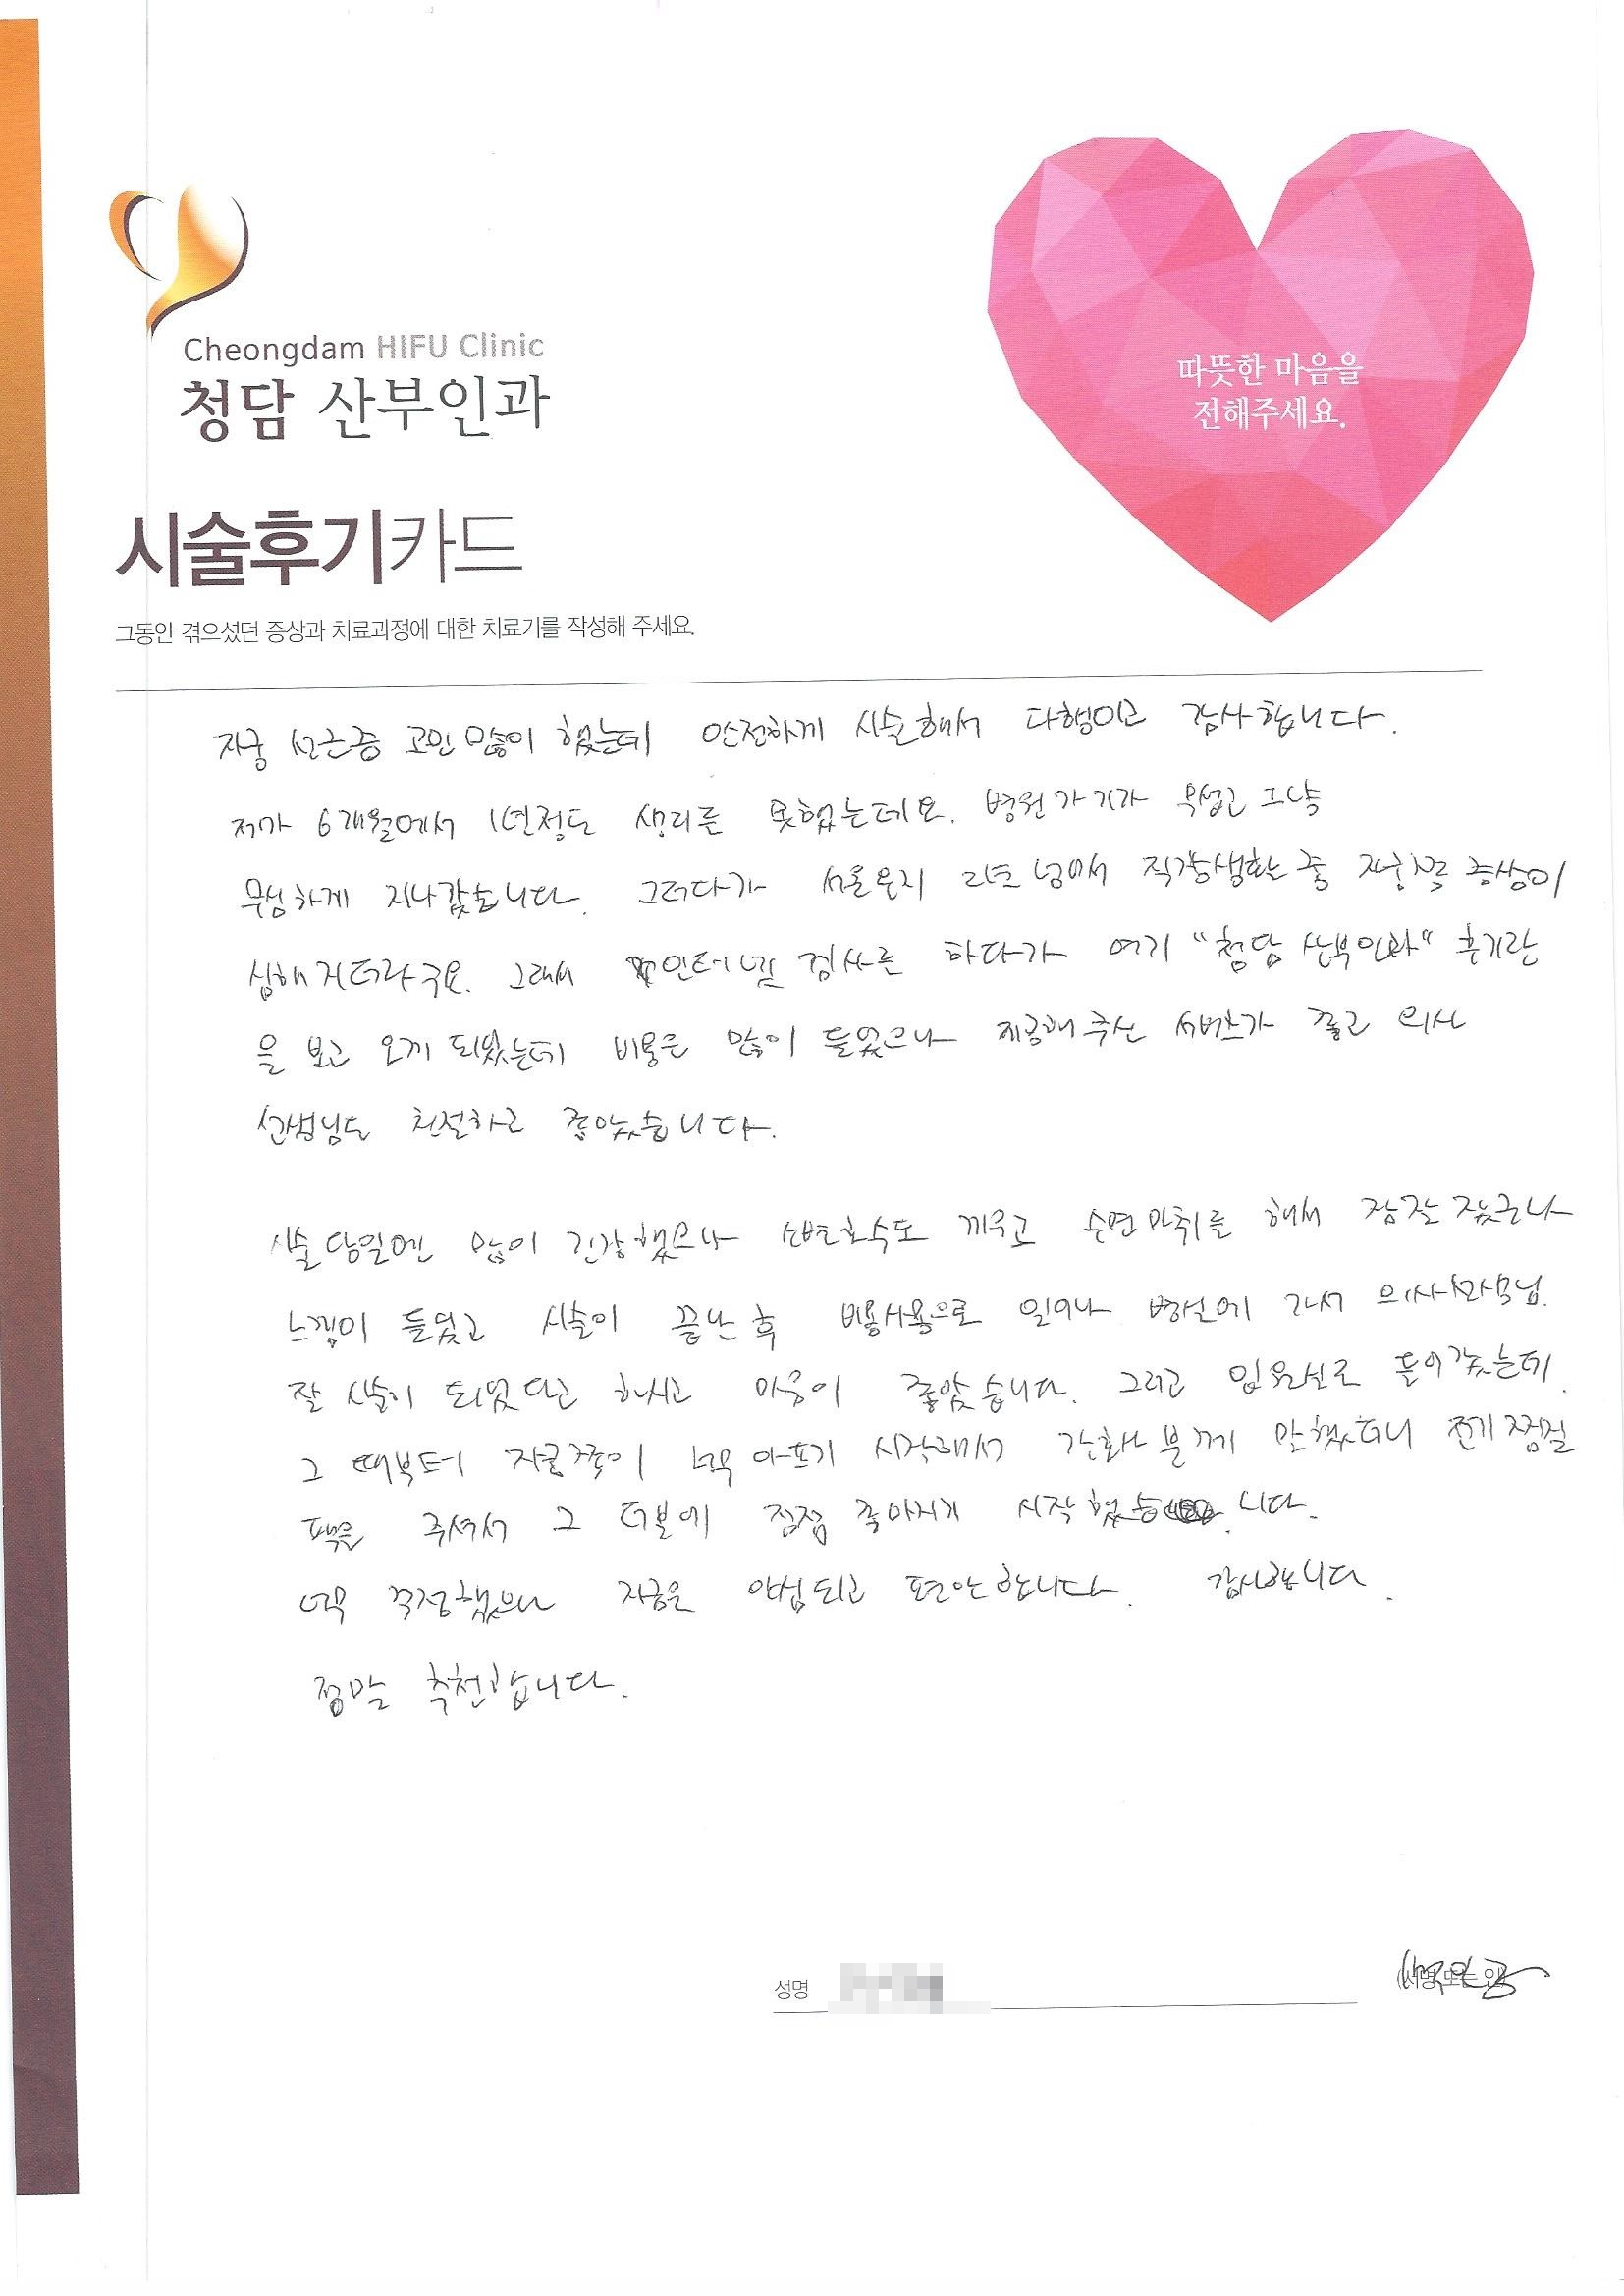 Cheongdam HIFU Clinic
청담 산부인과
따뜻한 마음을
전해주세요.
시술후기카드
그동안 겪으셨던 증상과 치료과정에 대한 치료기를 작성해 주세요.
자궁 선근증 고민 많이 했는데 안전하게 시술해서 다행이고 감사합니다.
저가 6개월에서 1년정도 생리를 못했는데요. 병원가기가 무섭고 그냥
무심하게 지나갔습니다. 그러다가 서른은지 2년 넘어서 직장생활 중 자궁쪽 증상이
심해지더라구요. 그래서 인터넷 검사를 하다가 여기 "청담 산부인과" 후기란
을 보고 오게 되었는데 비용은 많이 들었으나 제공해주신 서비스가 좋고 의사
선생님도 친절하고 좋았습니다.
시술 당일엔 많이 긴장했으나 소변호수도 끼우고 수면마취를 해서 잠잘 잤구나
느낌이 들었고 시술이 끝난 후 일어나 병실에 가서 의사선생님
잘 시술이 되었다고 하시고 마음이 좋았습니다. 그리고 입원실로 들어갔는데
그 때부터 자궁쪽이 너무 아프기 시작해서 간호사 분께 말했더니 전기찜질
팩을 주셔서 그 덕분에 점점 좋아지기 시작했습니다.
너무 걱정했으나 지금은 안심되고 편안합니다. 감사합니다.
정말 추천합니다.
성명
(서명 또는 인)